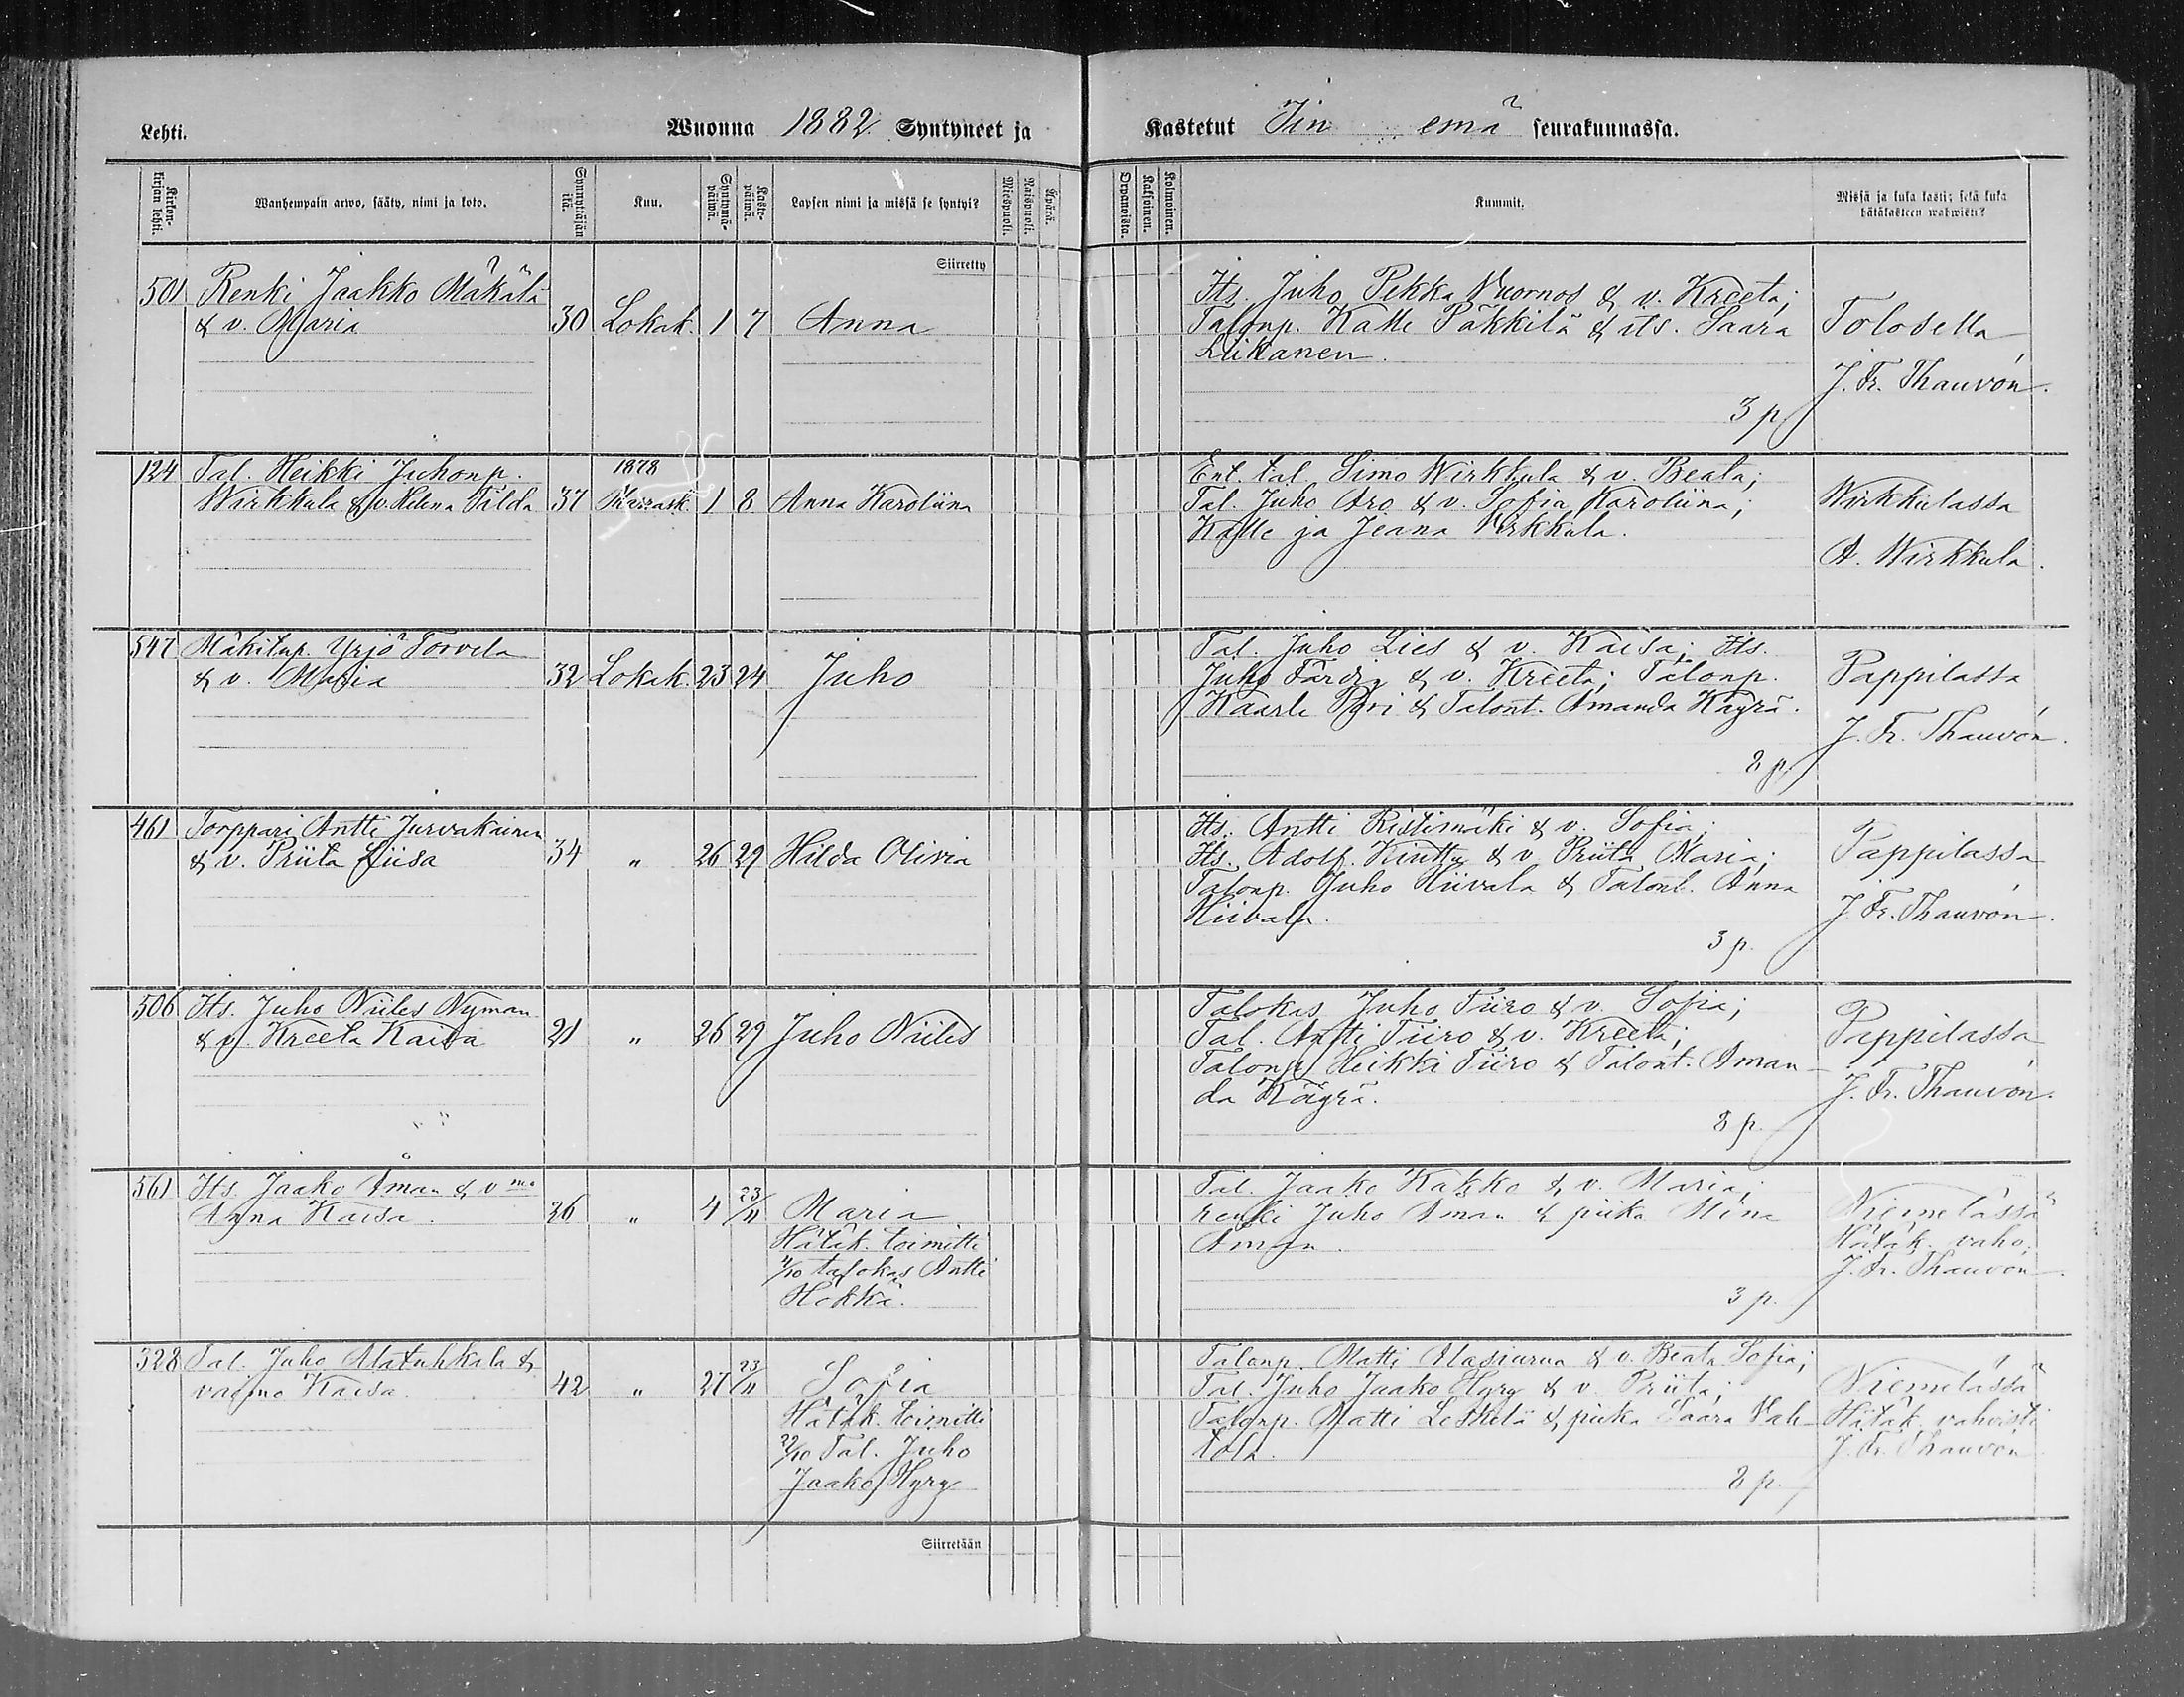 Lehti.
Wuonna 1882 Syntyneet ja
Kastetut Iin emä seurakunnassa.
Kirkon-kirjan lehti.
Wanhempain arwo, sääty, nimi ja koto.
Synnyttäjän ikä.
Kuu.
Syntymä-päiwä.
Kaste-päiwä.
Lapsen nimi ja missä se syntyi?
Miespuoli.
Naispuoli.
Äpärä.
Orpanoista.
Kaksoinen.
Kolmoinen.
Kummit.
Missä ja kuka kasti; sekä kuka
hätäkasteen wahwisti?
Siirretty
501 Renki Jaakko Mäkälä
& v. Maria 30 Lokak. 1 7 Anna
Its. Juho Pekka Vuornos & v. Kreeta;
Talonp. Kalle Päkkilä & its. Saara
Liikanen.
3 p
Tolosella
J. Fr. Thauvón.
124 Tal. Heikki Juhonp.
Wirkkula & v. Helena Tilda 37 1878 Marrask. 1 8 Anna Karoliina
Ent. tal. Simo Wirkkula & v. Beata;
Tal. Juho Aro & v. Sofia Karoliina;
Kalle ja Jeana Wirkkula.
Wirkkulassa
A. Wirkkula.
547 Mäkitup. Yrjö Torvela
& v. Maria 32 Lokak. 23 24 Juho
Tal. Juho Lies & v. Kaisa; Its.
Juho Färdig & v. Kreeta; Talonp.
Kaarle Pyri & Talont. Amanda Käyrä.
8 p.
Pappilassa
J. Fr. Thauvón.
461 Torppari Antti Jurvakainen
& v. Priita Liisa 34 " 26 29 Hilda Olivia
Its. Antti Ristimäki & v. Sofia;
Its. Adolf Kinttu & v. Priita Maria;
Talonp. Juho Hiivala & Talont. Anna
Hiivala.
3 p.
Pappilassa
J. Fr. Thauvón.
506 Its. Juho Niiles Nyman
& v. Kreeta Kaisa 21 " 26 29 Juho Niiles
Talokas Juho Tiiro & v. Sofia;
Tal. Antti Tiiro & v. Kreeta;
Talonp. Heikki Tiiro & Talont. Aman-
da Käyrä.
8 p.
Pappilassa
J. Fr. Thauvón.
561 Its. Jaako Aman & vmo
Anna Kaisa. 26 " 4 23/11 Maria
Hätäk. toimitti
4/10 talokas Antti
Hökkä.
Tal. Jaako Kakko & v. Maria;
renki Juho Aman & piika Stina
Aman.
3 p.
Niemelässä
Hätäk. vahv.
J. Fr. Thauvón.
328 Tal. Juho Alatuhkala &
vaimo Kaisa. 42 " 27 23/11 Sofia
Hätäk. toimitti
29/10 Tal. Juho
Jaako Hyry
Talonp. Matti Alasiurua & v. Beata Sofia;
Tal. Juho Jaako Hyry & v. Priita;
Talonp. Matti Leskelä & piika Saara Vah-
tola.
8 p.
Niemelässä
Hätäk. vahvisti
J. Fr. Thauvón
Siirretään